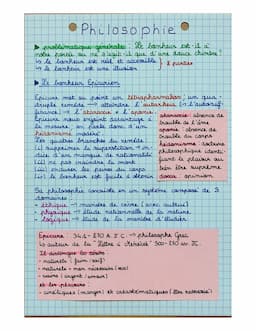 Philosophie
problématique générale : Le bonheur est-il à
notre portée ou ne s'agit-il que d'une douce chimère ?
↳ le bonheur est réel et accessible
↳ le bonheur est une illusion
2 parties
Le bonheur Epicurien
Epicure met au point un tétrapharmakon ; un qua-
druple remède → atteindre l'autarkeia (= l'autosuf-
fisance) → l'ataraxie & aponie.
Epicure nous enjoint davantage à
la mesure, on parle donc d'un
hédonisme modéré.
Les quatre branches du remède :
(i) supprimer la superstition, en-
duire d'un manque de rationalité
(ii) ne pas craindre la mort
(iii) endurer les peines du corps
(iv) le bonheur est facile à obtenir
ataraxie : absence de
trouble de l'âme
aponie : absence de
trouble du corps
hédonisme : doctrine
philosophique identi-
fiant le plaisir au
bien être suprême
doxa : opinion
Sa philosophie consiste en un système composé de 3
domaines :
- éthique → manière de vivre (avec autrui)
- physique → étude rationnelle de la nature
- logique → étude du langage
Epicure : 342 - 270 A J-C → philosophe Grec
↳ auteur de la "Lettre à Ménécée" 300-270 av JC.
Il distingue les désirs
- naturels (faim / soif)
- naturels - non nécessaires
- vains (argent / amour)
et les plaisirs :